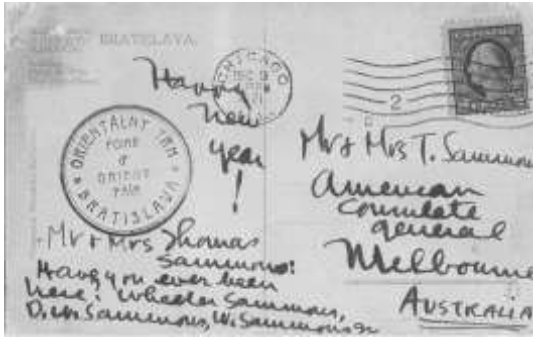 BRATISLAVA.
CHICAGO
DEC
2
Happy
new
year
!
ORIENTALNY TRH
FOIRE
d'
ORIENT
BRATISLAVA
Mr + Mrs T. Sammons
American
Consulate
General
Melbourne
AUSTRALIA
Mr + Mrs Thomas
Sammons:
Have you ever been
here? Wheeler Sammons,
D. W. Sammons, W. Sammons Jr